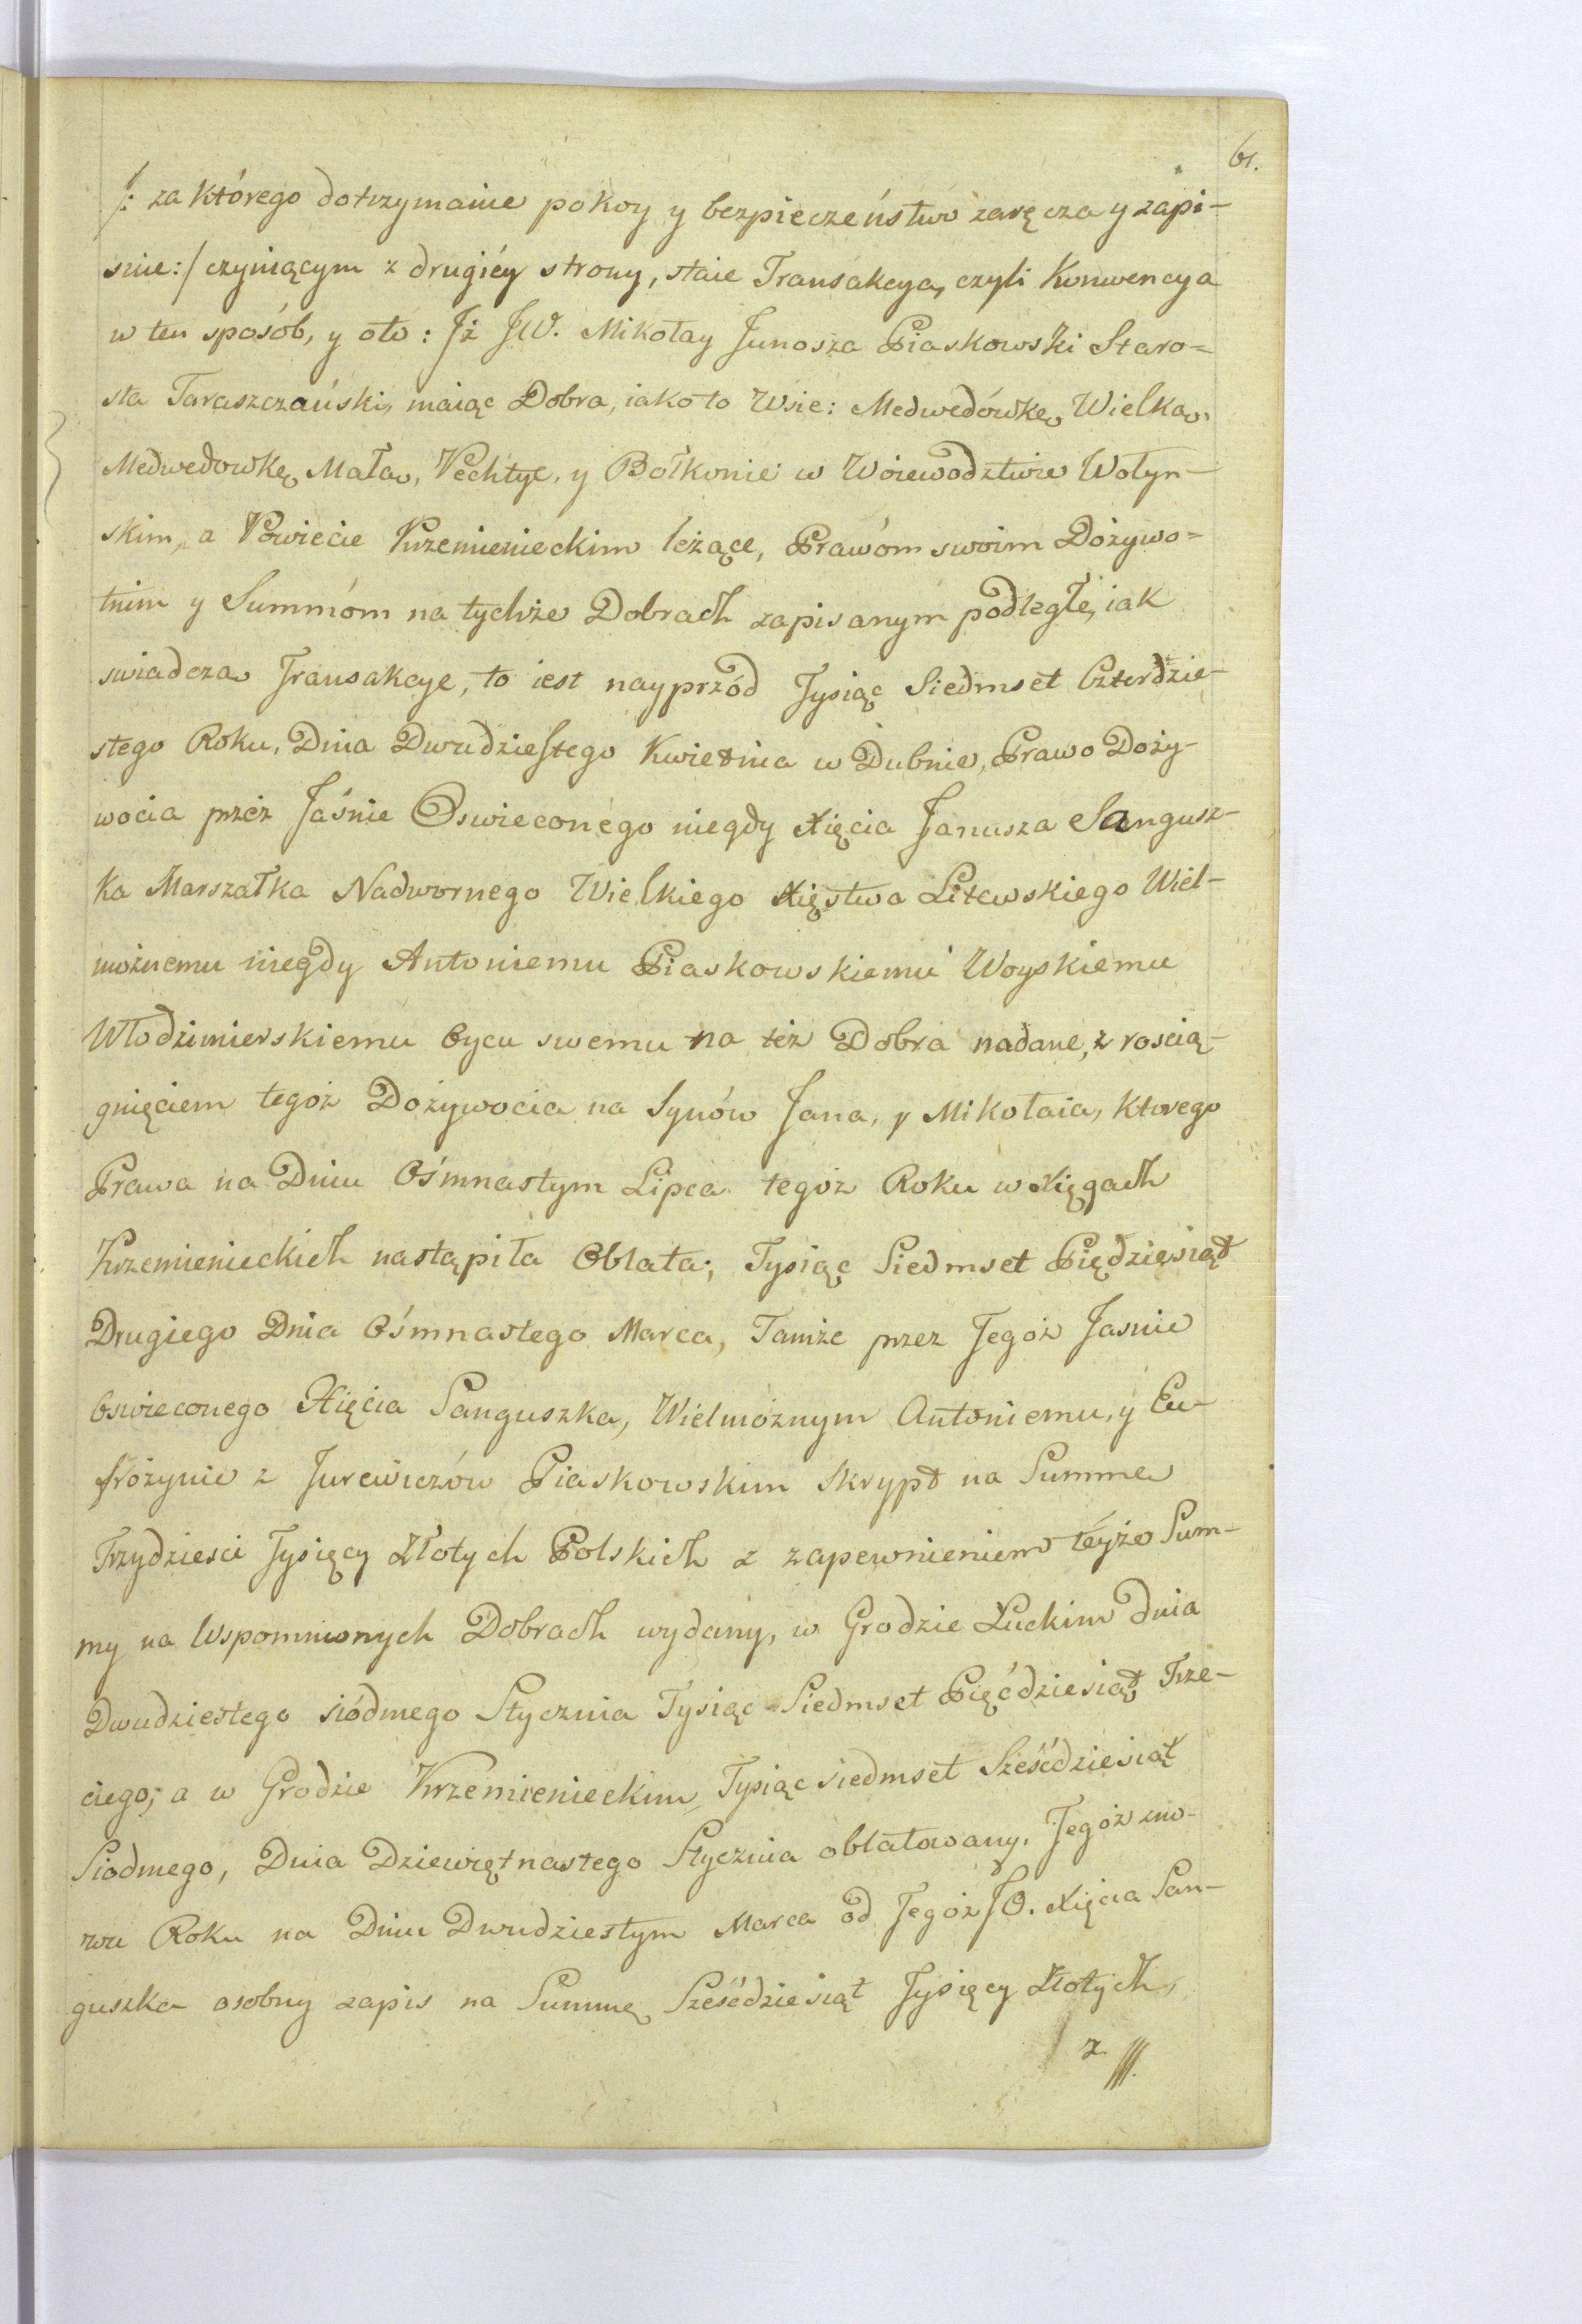 61.
/: za którego dotrzymanie pokoy y bezpieczeństwo zaręcza y zapi-
snie:/ czyniącym z drugiéy strony, staie Transakcya, czyli Konwencya
w ten sposób, y oto: Jż JW. Mikołay Junosza Piaskowski Staro=
sta Taraszczański, maiąc Dobra, iako to Wsie: Medwedówkę Wielką,
Medwedowkę Małą, Pechtyc, y Bołkonie w Woiewodztwie Wołyn-
skim, a Powiecie Krzemienieckim leżące, Prawóm swoim Dożywo=
tnim y Summóm na tychże Dobrach zapisanym podległe, iak
swiadczą Transakcye, to iest nayprzód Tysiąc Siedmset Czterdzie-
stego Roku, Dnia Dwudziestego Kwietnia w Dubnie, Prawo Doży-
wocia przez Jaśnie Oswieconego niegdy Xięcia Janusza Sangusz-
ka Marszałka Nadwornego Wielkiego Xięstwa Litewskiego Wiel-
możnemu niegdy Antoniemu Piaskowskiemu Woyskiemu
Włodzimierskiemu Oycu swemu na też Dobra nadane, z rością-
gnięciem tegoż Dożywocia na Synów Jana, y Mikołaia, ktorego
Prawa na Dniu Ośmnastym Lipca tegoż Roku w Xięgach
Krzemienieckich nastąpiła Oblata; Tysiąc Siedmset Piędziesiąt
Drugiego Dnia Ośmnastego Marca, Tamże przez Tegoż Jasnie
Oswieconego Xięcia Sanguszka, Wielmożnym Antoniemu, y Eu-
frózynie z Jurewiczów Piaskowskim Skrypt na Summę
Trzydziesci Tysięcy Złotych Polskich z zapewnieniem téyże Sum-
my na Wspomnionych Dobrach wydany, w Grodzie Łuckim Dnia
Dwudziestego siódmego Stycznia Tysiąc Siedmset Pięćdziesiąt Trze-
ciego; a w Grodzie Krzemienieckim, Tysiąc siedmset Sześćdziesiąt
Siodmego, Dnia Dziewiętnastego Stycznia oblatowany. Tegoż zno-
wu Roku na Dniu Dwudziestym Marca od Tegoż JO. Xięcia San-
guszka osobny zapis na Summę Sześćdziesiąt Tysięcy Złotych,
z